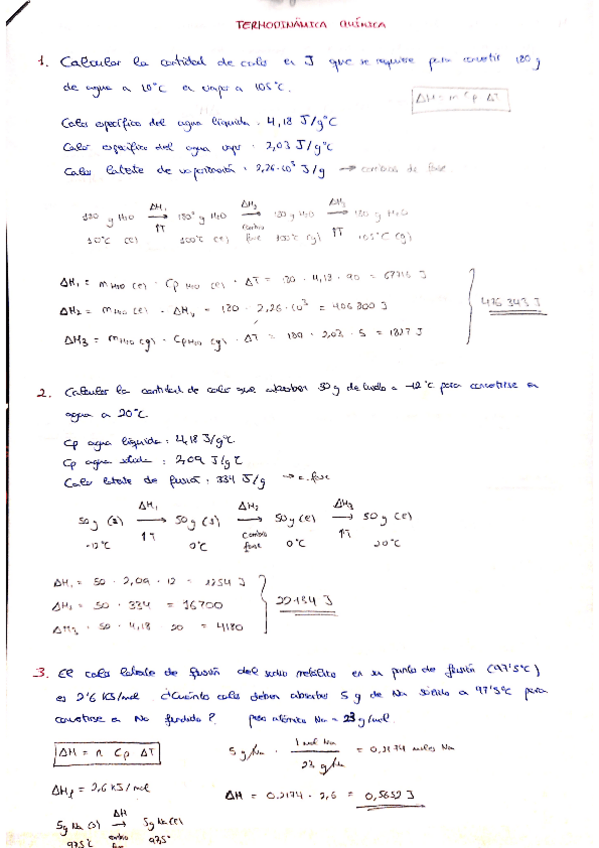 TERMODINÁMICA QUÍMICA
1. Calcular la cantidad de calor en J que se requiere para convertir 180 g
de agua a 10°C en vapor a 105°C.
ΔH = m Cp ΔT
Calor específico del agua líquida: 4,18 J/g°C
Calor específico del agua vapor: 2,03 J/g°C
Calor latente de vaporización: 2,26·10³ J/g → cambios de fase
180 g H2O →ΔH1 ↑T 180 g H2O →ΔH2 cambio fase 180 g H2O →ΔH3 ↑T 180 g H2O
10°C (l) 100°C (l) 100°C (g) 105°C (g)
ΔH1 = m H2O (l) · Cp H2O (l) · ΔT = 180 · 4,18 · 90 = 67716 J
ΔH2 = m H2O (l) · ΔHv = 180 · 2,26·10³ = 406800 J
476 343 J
ΔH3 = m H2O (g) · Cp H2O (g) · ΔT = 180 · 2,03 · 5 = 1827 J
2. Calcular la cantidad de calor que absorben 50 g de hielo a -12°C para convertirse en
agua a 20°C.
Cp agua líquida: 4,18 J/g°C
Cp agua sólida: 2,09 J/g°C
Calor latente de fusión: 334 J/g → c. fase
50 g (s) →ΔH1 ↑T 50 g (s) →ΔH2 cambio fase 50 g (l) →ΔH3 ↑T 50 g (l)
-12°C 0°C 0°C 20°C
ΔH1 = 50 · 2,09 · 12 = 1254 J
ΔH2 = 50 · 334 = 16700
22134 J
ΔH3 = 50 · 4,18 · 20 = 4180
3. El calor latente de fusión del sodio metálico en su punto de fusión (97'5°C)
es 2'6 KJ/mol. ¿Cuánto calor deben absorber 5 g de Na sólido a 97'5°C para
convertirse en Na fundido? peso atómico Na = 23 g/mol.
ΔH = n Cp ΔT
5 g Na · 1 mol Na / 23 g Na = 0,2174 moles Na
ΔHf = 2,6 KJ/mol
ΔH = 0,2174 · 2,6 = 0,5652 J
5g Na (s) →ΔH cambio 5g Na (l)
97,5°C 97,5°